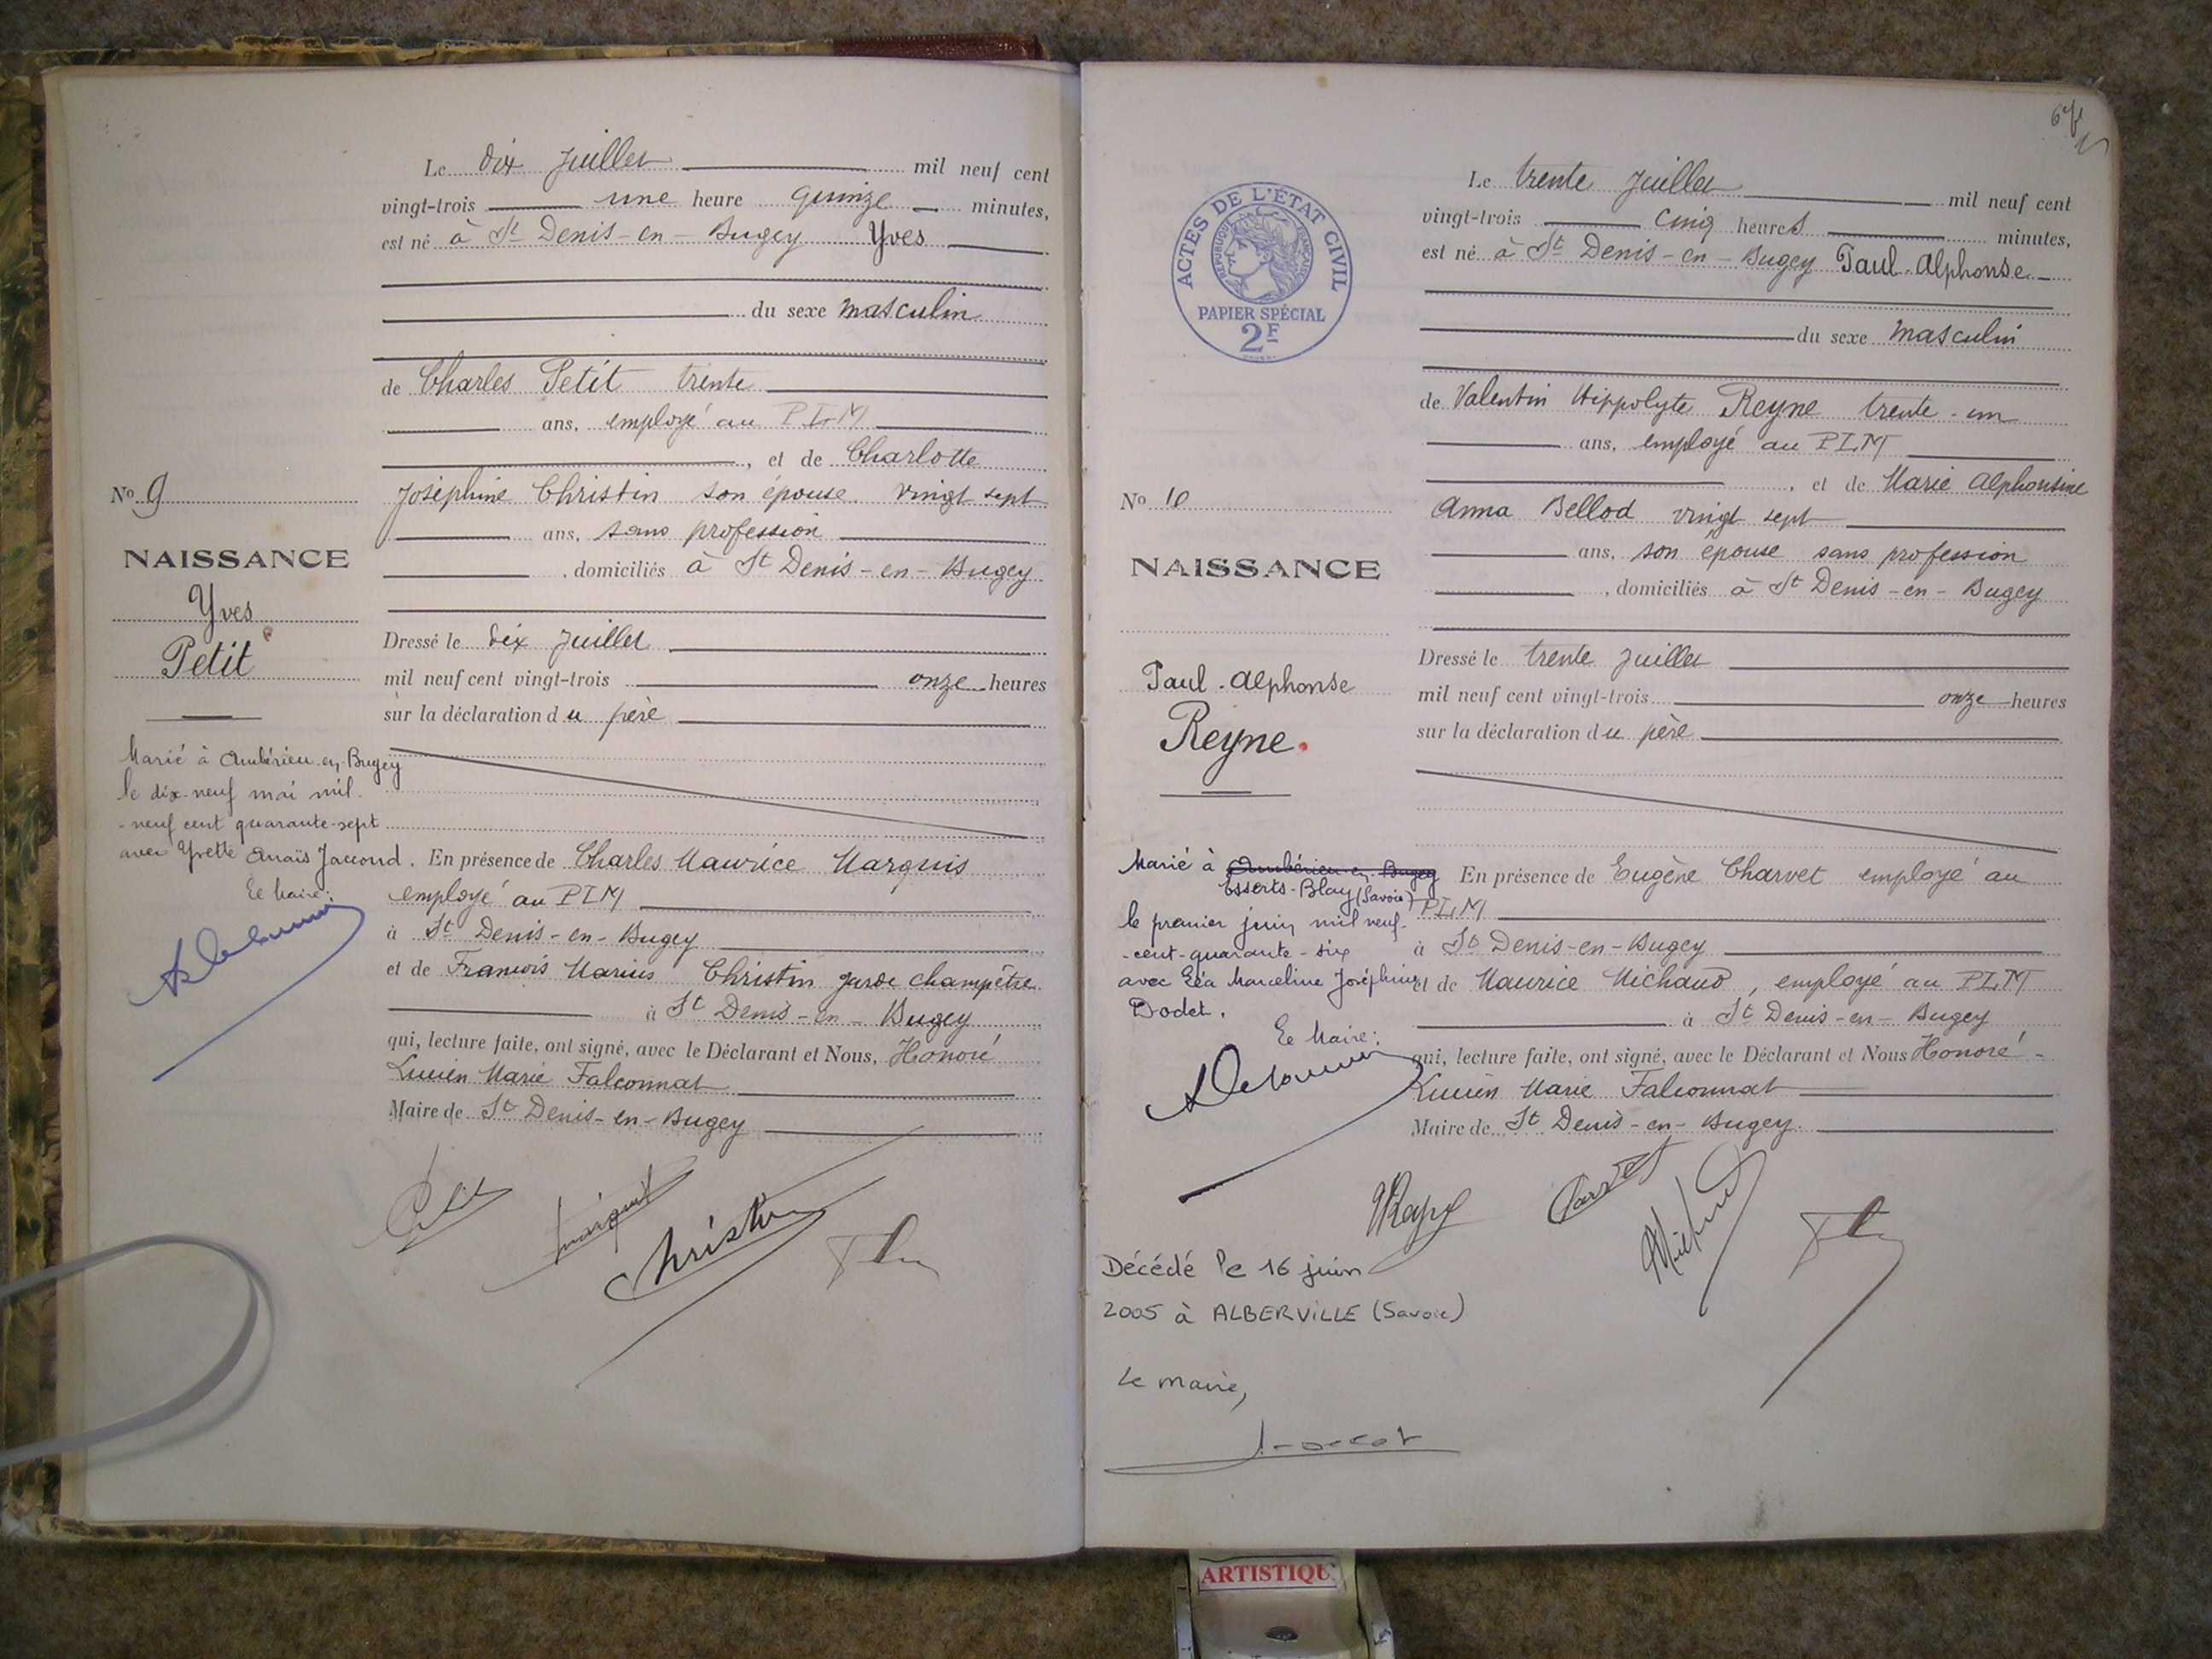 Le dix Juillet mil neuf cent
vingt-trois une heure quinze minutes,
est né à St Denis-en-Bugey Yves
du sexe masculin
de Charles Petit trente
ans, employé au PLM
, et de Charlotte
Joséphine Christin son épouse. vingt sept
ans, sans profession
, domiciliés à St Denis-en-Bugey
Dressé le dix Juillet
mil neuf cent vingt-trois onze heures
sur la déclaration du père
En présence de Charles Maurice Marquis
employé au PLM
à St Denis-en-Bugey
et de François Marius Christin garde champêtre
à St Denis-en-Bugey
qui, lecture faite, ont signé, avec le Déclarant et Nous, Honoré
Lucien Marie Falconnat
Maire de St Denis-en-Bugey
No 9
NAISSANCE
Yves
Petit
Marié à Ambérieu-en-Bugey
le dix-neuf mai mil-
-neuf cent quarante-sept
avec Yvette Anaïs Jacond.
Le Maire:
Marquis
Christin
6
Le trente Juillet mil neuf cent
vingt-trois cinq heures minutes,
est né à St Denis-en-Bugey Paul-Alphonse
du sexe masculin
de Valentin Hippolyte Reyne trente-un
ans, employé au PLM
, et de Marie Alphonsine
Anna Bellod vingt sept
ans, son épouse sans profession
, domiciliés à St Denis-en-Bugey
Dressé le trente Juillet
mil neuf cent vingt-trois onze heures
sur la déclaration du père
En présence de Eugène Charvet employé au
PLM
à St Denis-en-Bugey
et de Maurice Michaud, employé au PLM
à St Denis-en-Bugey
qui, lecture faite, ont signé, avec le Déclarant et Nous Honoré
Lucien Marie Falconnat
Maire de St Denis-en-Bugey.
ACTES DE L'ÉTAT CIVIL
RÉPUBLIQUE FRANÇAISE
PAPIER SPÉCIAL
2F
No 10
NAISSANCE
Paul-Alphonse
Reyne.
Marié à Ambérieu-en-Bugey
Esserts-Blay (Savoie)
le premier juin mil neuf-
-cent-quarante-six
avec Léa Marceline Joséphine
Dodet.
Le Maire:
Décédé le 16 juin
2005 à ALBERVILLE (Savoie)
Le maire,
ARTISTIQU